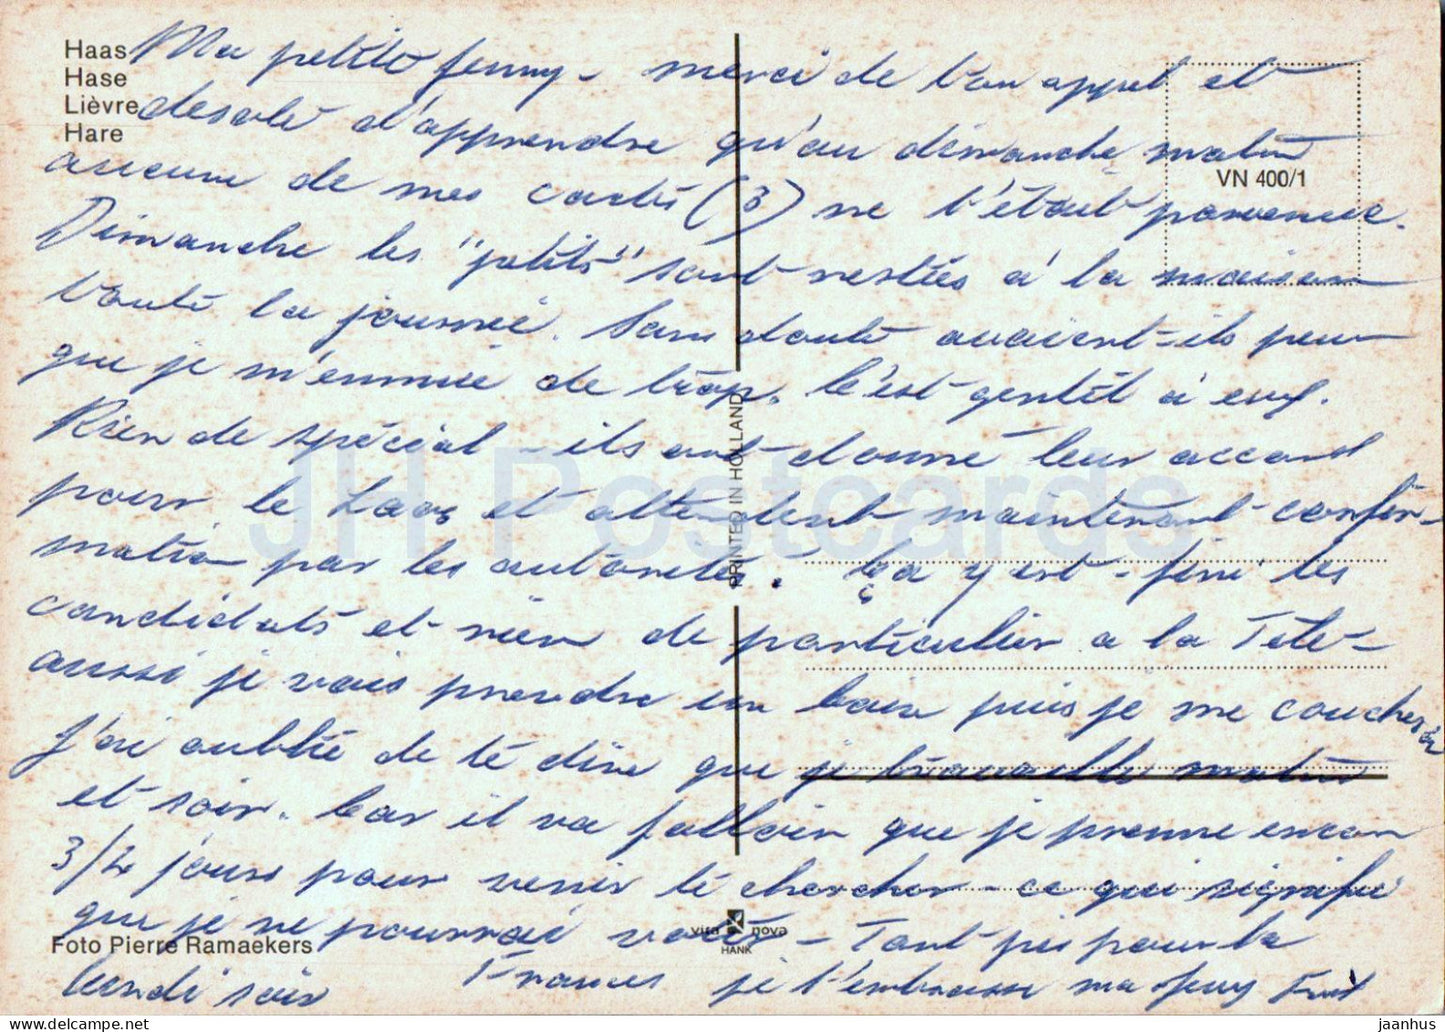 Haas
Hase
Lièvre
Hare
Ma petite Jenny - merci de ton appel et
desolé d'apprendre qu'au dimanche matin
aucune de mes cartes (3) ne t'était parvenue.
Dimanche les "petits" sont restés à la maison
toute la journée. Sans doute avaient-ils peur
que je m'ennuie de trop. C'est gentil à eux.
Rien de spécial - ils ont donné leur accord
pour le Laos et attendent maintenant confir-
mation par les autorités. Ça y est - fini les
candidats et rien de particulier à la Télé -
aussi je vais prendre un bain puis je me coucherai
J'ai oublié de te dire que je travaille matin
et soir. Car il va falloir que je prenne encore
3/4 jours pour venir te chercher - ce qui signifie
que je ne pourrai voter - Tant pis pour la
France je t'embrasse ma Jenny
Lundi soir
VN 400/1
PRINTED IN HOLLAND
vita nova
HANK
Foto Pierre Ramaekers
JH Postcards
jaanhus - www.delcampe.net